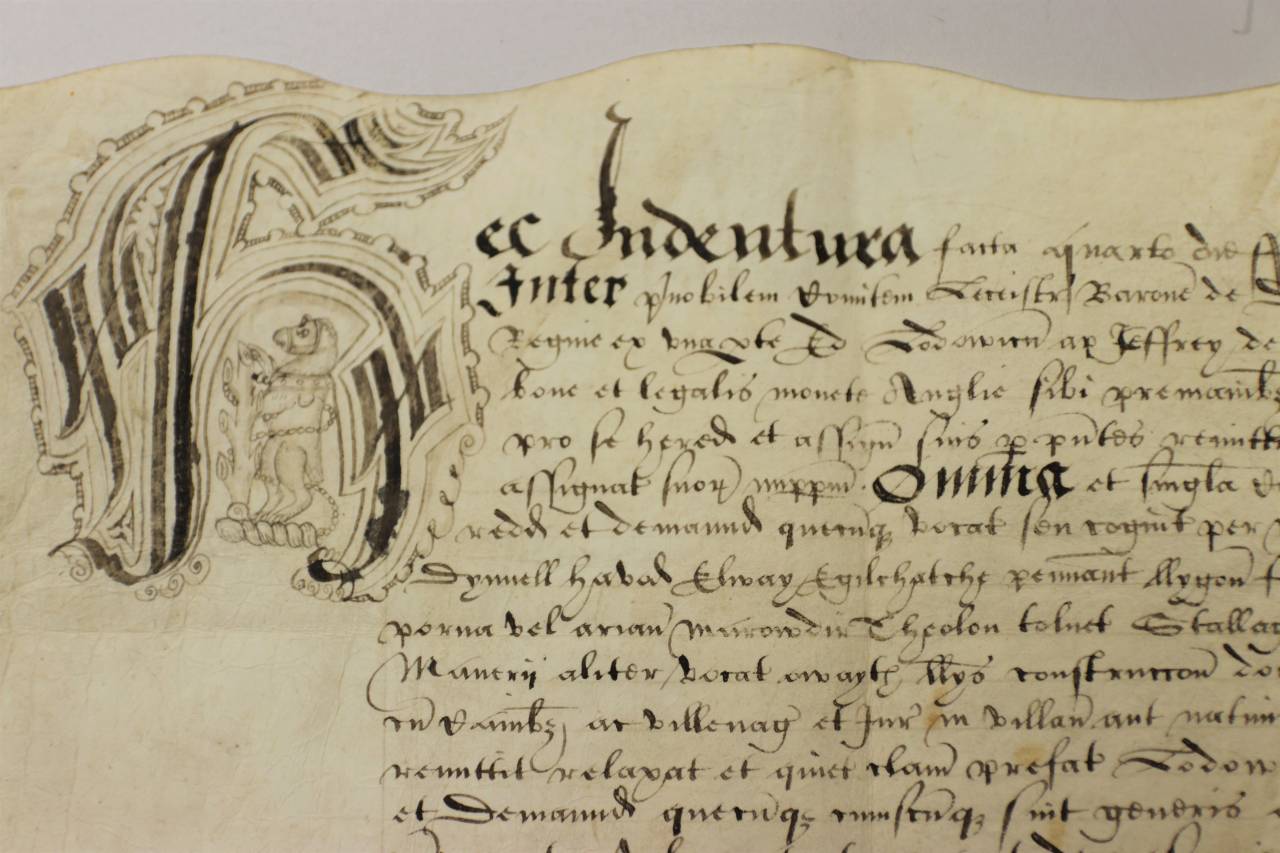 Hec Indentura facta quarto die
Inter p'nobilem Comitem Leicistr Baronē de
Regine ex vna pte Et Lodowicū ap Jeffrey de
bone et legalis monete Anglie sibi premanib
pro se hered et assign suis p pn̄tes remitt
assignat suor imppm̄ Omnia et singla
redd et demannd quecūq vocat seu cogint per
Dynnell havod Elway Egilchatche pennant llygon
porna vel arian Marowdir Theolon tolnet Stallag
Manerij aliter vocat owayth llys construccon
cū Ramb3 ac villenag et Jur in villan ant nativi
remittit relaxat et quiet clam prefat Lodow
et Demannd quecūq3 cuiuscūq3 sint generis